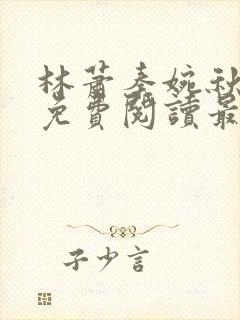 林蕭秦婉秋
免費閱讀最
子少言